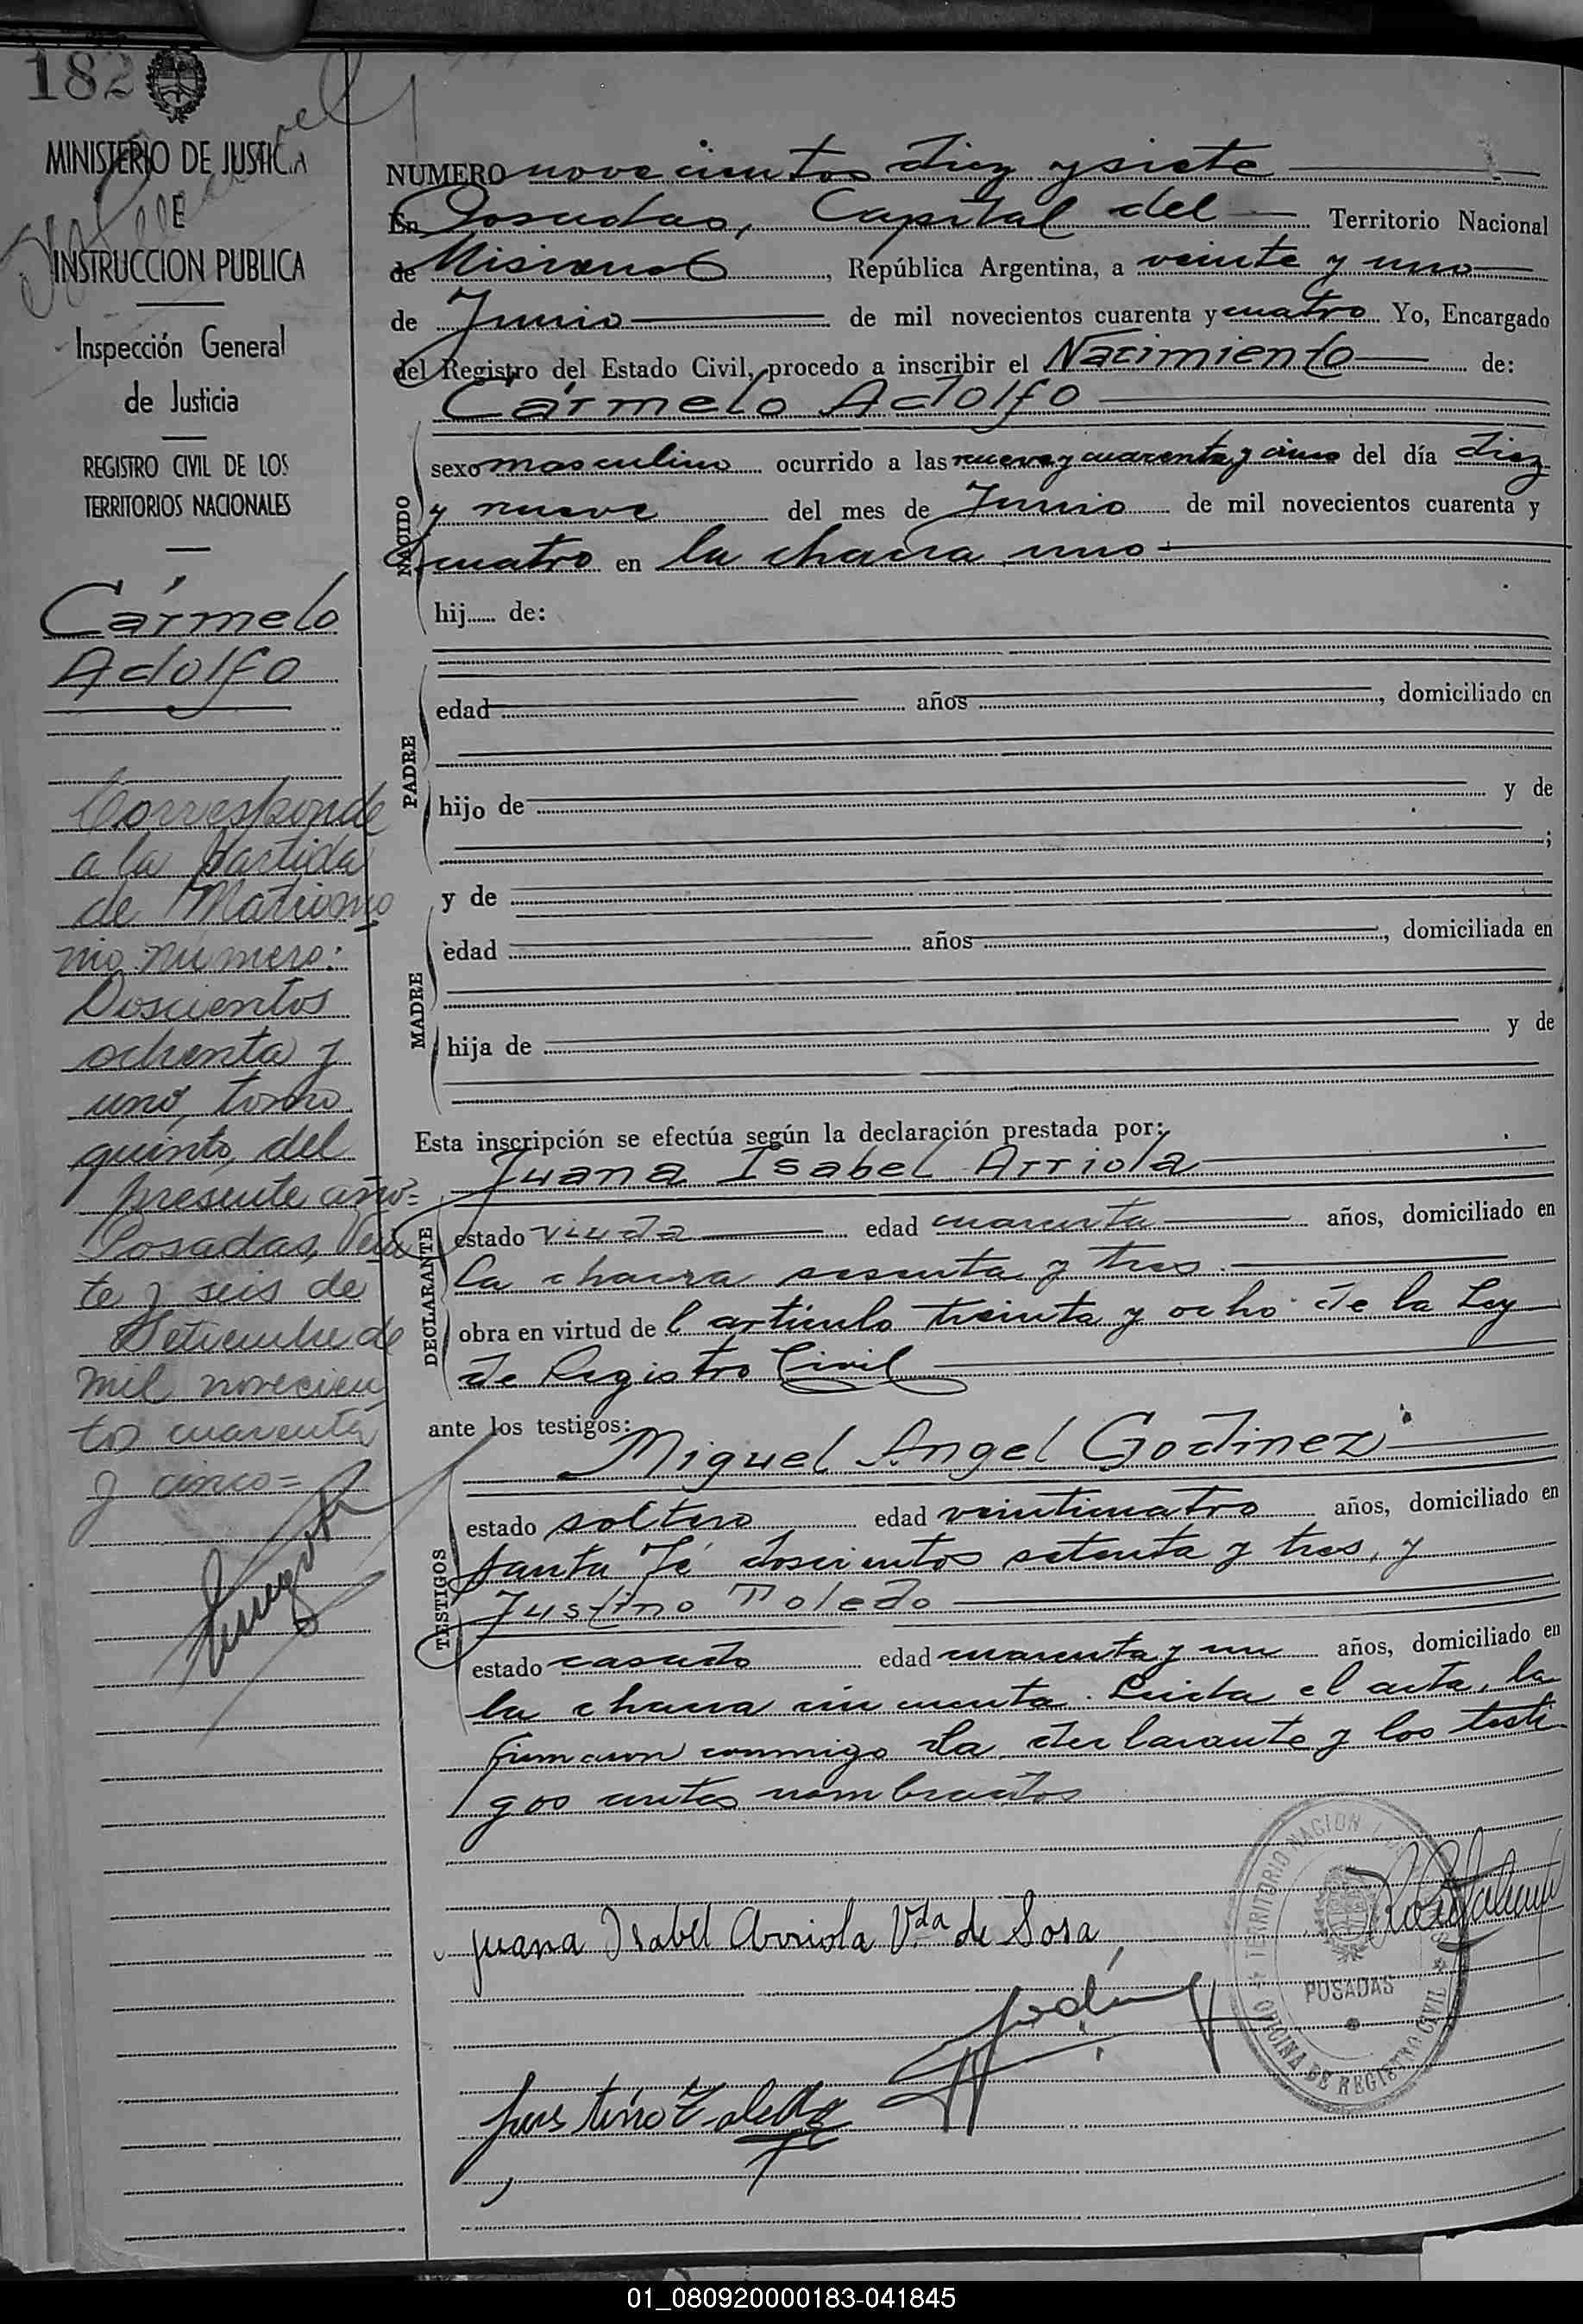 182
MINISTERIO DE JUSTICIA
E
INSTRUCCION PUBLICA
Inspección General
de Justicia
REGISTRO CIVIL DE LOS
TERRITORIOS NACIONALES
Cármelo
Adolfo
Corresponde
a la Partida
de Matrimo
nio numero:
Doscientos
ochenta y
uno, tomo
quinto, del
presente año=
Posadas, Vein
te y seis de
Setiembre de
mil novecien
tos cuarenta
y cinco=
NUMERO novecientos diez y siete
En Posadas, Capital del Territorio Nacional
de Misiones, República Argentina, a veinte y uno
de Junio de mil novecientos cuarenta y cuatro Yo, Encargado
del Registro del Estado Civil, procedo a inscribir el Nacimiento de:
Cármelo Adolfo
NACIDO
sexo masculino ocurrido a las nueve y cuarenta y cinco del día diez
y nueve del mes de Junio de mil novecientos cuarenta y
cuatro en la chacra uno
hij...... de:
PADRE
edad años, domiciliado en
hijo de y de
;
y de
MADRE
edad años, domiciliada en
hija de y de
Esta inscripción se efectúa según la declaración prestada por:
Juana Isabel Arriola
DECLARANTE
estado viuda edad cuarenta años, domiciliado en
la chacra sesenta y tres
obra en virtud de l artículo treinta y ocho de la Ley
de Registro Civil
ante los testigos:
Miguel Angel Godinez
TESTIGOS
estado soltero edad veinticuatro años, domiciliado en
Santa Fé doscientos setenta y tres, y
Justino Toledo
estado casado edad cuarenta y un años, domiciliado en
la chacra cincuenta. Leida el acta, la
firmaron conmigo la declarante y los testi
gos antes nombrados
Juana Isabel Arriola Vda de Sosa
Justino Toledo
TERRITORIO NACIONAL
POSADAS
OFICINA DE REGISTRO CIVIL
01_080920000183-041845